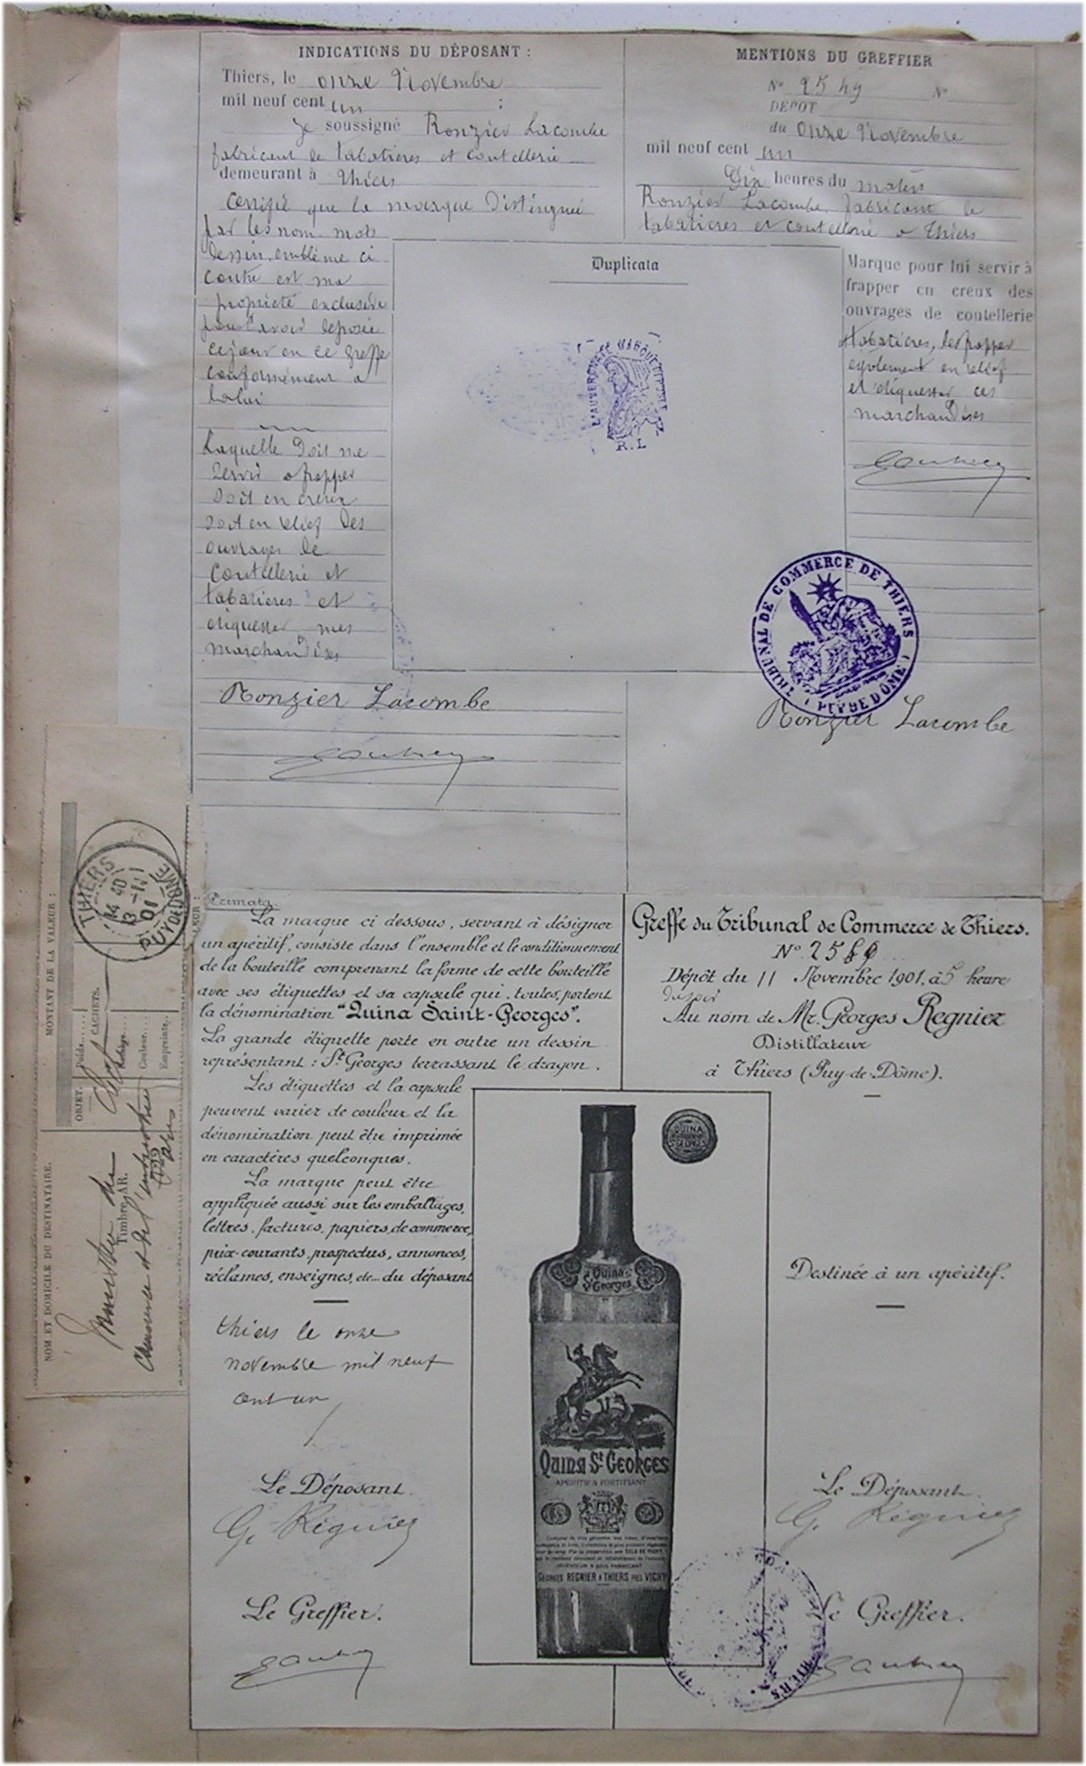 INDICATIONS DU DÉPOSANT :
Thiers, le onze Novembre
mil neuf cent un
Je soussigné Ronzier Lacombe
fabricant de tabatières et coutellerie
demeurant à Thiers
Certifie que la marque distinguée
par les nom mots
dessin, emblême ci
contre est ma
propriété exclusive
pour l'avoir déposée
ce jour en ce greffe
conformément a
la loi
Laquelle doit me
servir a frapper
soit en creux
soit en relief des
ouvrages de
coutellerie et
tabatieres et
etiquetter mes
marchandises
Ronzier Lacombe
MENTIONS DU GREFFIER
N° 2549 N°
DÉPOT
du onze Novembre
mil neuf cent un
Dix heures du matin
Ronzier Lacombe, fabricant de
tabatieres et coutellerie a Thiers
Marque pour lui servir à
frapper en creux des
ouvrages de coutellerie
tabatières, les frapper
egalement en relief
et etiquetter ces
marchandises
Duplicata
L'AUVERGNATE MARQUE DÉPOSÉE
R.L
TRIBUNAL DE COMMERCE DE THIERS
(PUY DE DÔME)
Ronzier Lacombe
THIERS
13 -11
01
PUY DE DOME
MONTANT DE LA VALEUR :
OBJET.
Poids....
CACHETS.
Couleur....
Empreinte..
Timbre AR.
NOM ET DOMICILE DU DESTINATAIRE.
Commerce et de l'industrie
Primata
La marque ci dessous, servant à désigner
un apéritif, consiste dans l'ensemble et le conditionnement
de la bouteille comprenant la forme de cette bouteille
avec ses étiquettes et sa capsule qui, toutes, portent
la dénomination "Quina Saint-Georges".
La grande étiquette porte en outre un dessin
représentant : St Georges terrassant le dragon.
Les étiquettes et la capsule
peuvent varier de couleur et la
dénomination peut être imprimée
en caractères quelconques.
La marque peut être
appliquée aussi sur les emballages,
lettres, factures, papiers de commerce,
prix-courants, prospectus, annonces,
réclames, enseignes, etc... du déposant
thiers le onze
novembre mil neuf
cent un
Le Déposant.
G. Régnier
Le Greffier.
Greffe du Tribunal de Commerce de Thiers.
Dépôt du 11 Novembre 1901, à 5 heure
du soir
Au nom de Mr. Georges Regnier
Distillateur
à Thiers (Puy-de-Dôme).
QUINA
ST GEORGES
Quina
St Georges
QUINA ST GEORGES
APÉRITIF & FORTIFIANT
GEORGES REGNIER À THIERS PRÈS VICHY
Destinée à un apéritif.
Le Déposant.
G. Régnier
Le Greffier.
THIERS